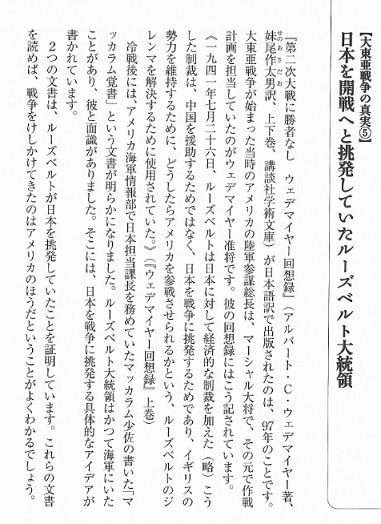 【大東亜戦争の真実⑤】
日本を開戦へと挑発していたルーズベルト大統領
『第二次大戦に勝者なし　ウェデマイヤー回想録』（アルバート・C・ウェデマイヤー著、
妹尾作太男訳、上下巻、講談社学術文庫）が日本語訳で出版されたのは、97年のことです。
せのおさだお
大東亜戦争が始まった当時のアメリカの陸軍参謀総長は、マーシャル大将で、その元で作戦
計画を担当していたのがウェデマイヤー准将です。彼の回想録にはこう記されています。
《一九四一年七月二十六日、ルーズベルトは日本に対して経済的な制裁を加えた（略）こう
した制裁は、中国を援助するためではなく、日本を戦争に挑発するためであり、イギリスの
勢力を維持するために、どうしたらアメリカを参戦させられるかという、ルーズベルトのジ
レンマを解決するために使用されていた。》（『ウェデマイヤー回想録』上巻）
冷戦後には、アメリカ海軍情報部で日本担当課長を務めていたマッカラム少佐の書いた「マ
ッカラム覚書」という文書が明らかになりました。ルーズベルト大統領はかつて海軍にいた
ことがあり、彼と面識がありました。そこには、日本を戦争に挑発する具体的なアイデアが
書かれています。
２つの文書は、ルーズベルトが日本を挑発していたことを証明しています。これらの文書
を読めば、戦争をけしかけてきたのはアメリカのほうだということがよくわかるでしょう。